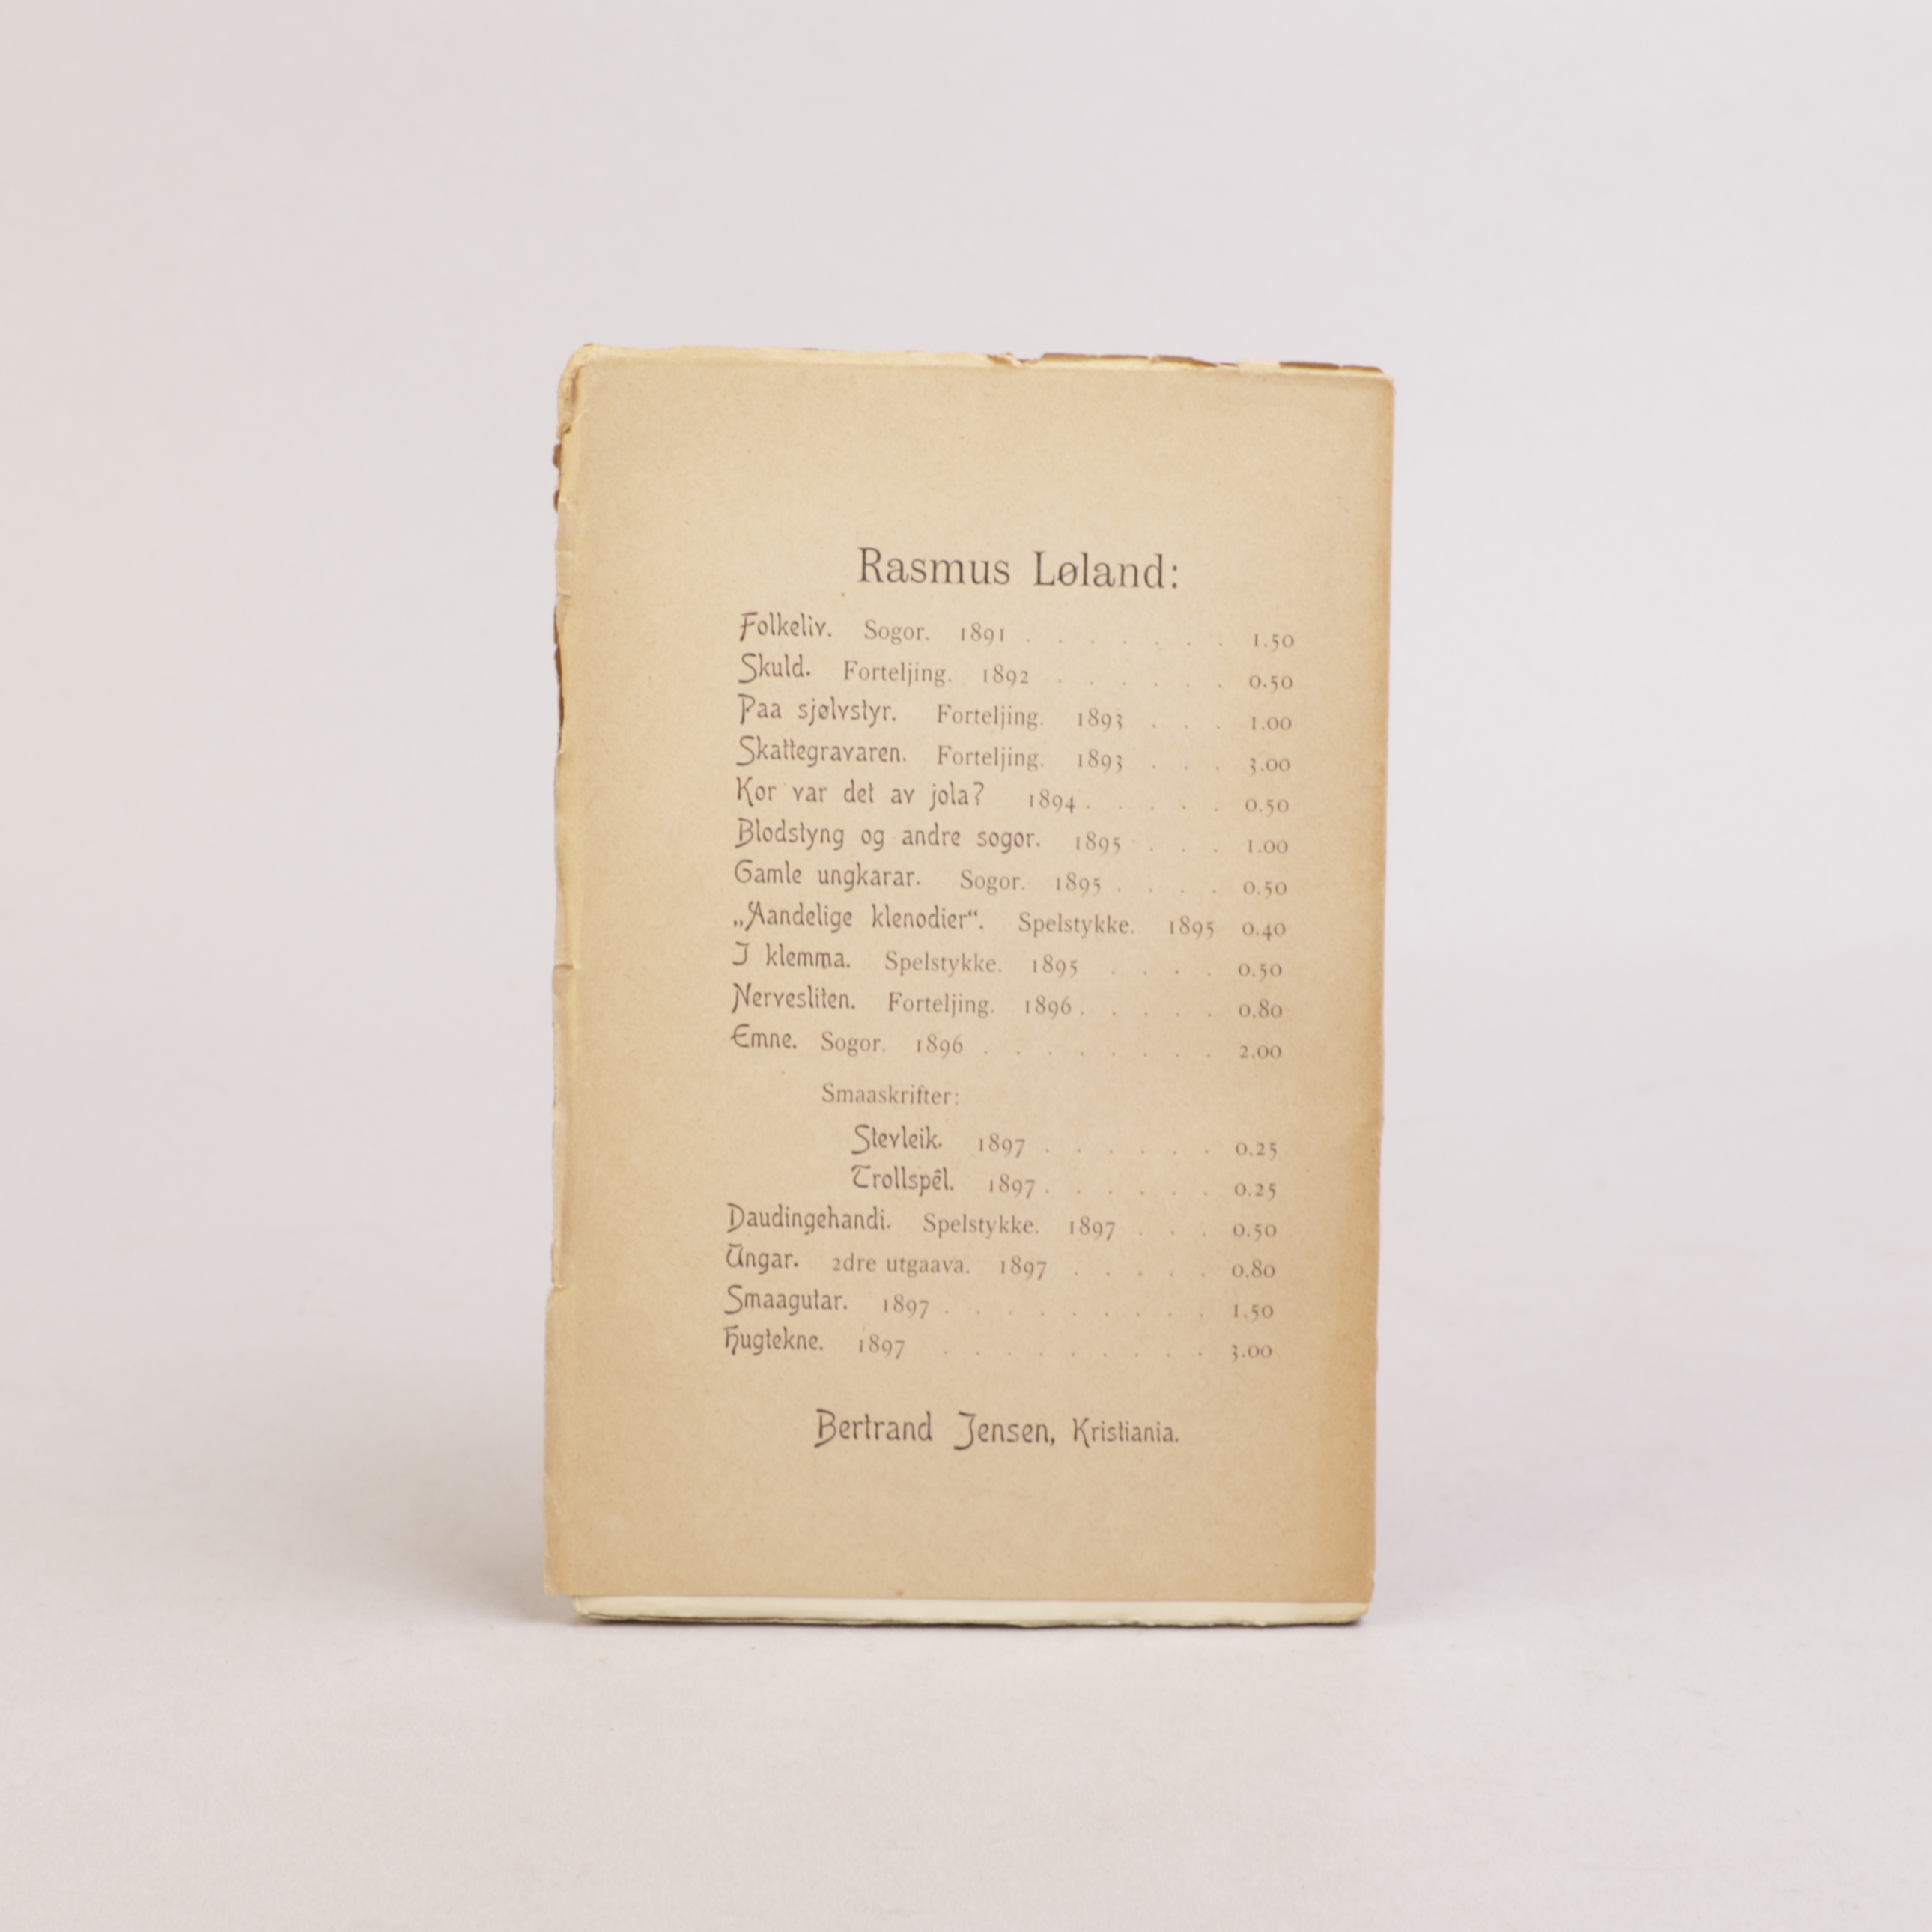 Rasmus Løland:
Folkeliv. Sogor. 1891 . . . . . . . 1.50
Skuld. Forteljing. 1892 . . . . . . 0.50
Paa sjølvstyr. Forteljing. 1893 . . . 1.00
Skattegravaren. Forteljing. 1893 . . . 3.00
Kor var det av jola? 1894 . . . . . 0.50
Blodstyng og andre sogor. 1895 . . . 1.00
Gamle ungkarar. Sogor. 1895 . . . . 0.50
„Aandelige klenodier“. Spelstykke. 1895 0.40
I klemma. Spelstykke. 1895 . . . . 0.50
Nervesliten. Forteljing. 1896 . . . . . 0.80
Emne. Sogor. 1896 . . . . . . . . 2.00
Smaaskrifter:
Stevleik. 1897 . . . . . . 0.25
Trollspêl. 1897 . . . . . . 0.25
Daudingehandi. Spelstykke. 1897 . . . 0.50
Ungar. 2dre utgaava. 1897 . . . . . 0.80
Smaagutar. 1897 . . . . . . . . . 1.50
Hugtekne. 1897 . . . . . . . . . 3.00
Bertrand Jensen, Kristiania.